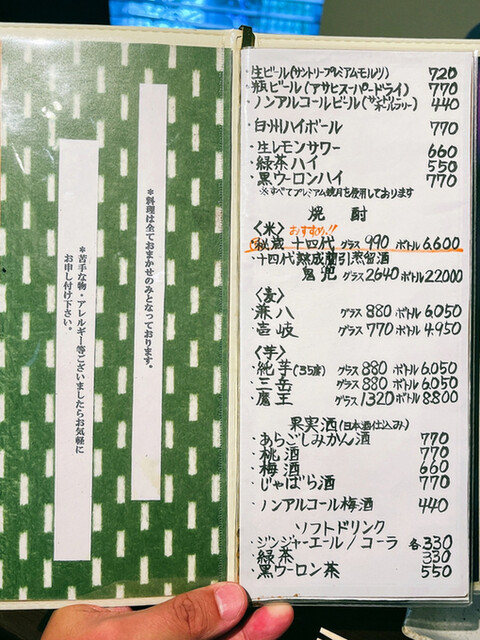 *料理は全ておまかせのみとなっております。
*苦手な物・アレルギー等ございましたらお気軽に
お申し付け下さい。
・生ビール(サントリープレミアムモルツ) 720
・瓶ビール(アサヒスーパードライ) 770
・ノンアルコールビール(サントリーオールフリー) 440
・白州ハイボール 770
・生レモンサワー 660
・緑茶ハイ 550
・黒ウーロンハイ 770
※すべてプレミアム焼酎を使用しております
焼酎
〈米〉 おすすめ!!
・秘蔵 十四代 グラス 990 ボトル 6,600
・十四代熟成蘭引蒸留酒
鬼兜 グラス 2640 ボトル 22,000
〈麦〉
・兼八 グラス 880 ボトル 6,050
・壱岐 グラス 770 ボトル 4,950
〈芋〉
・純芋(35度) グラス 880 ボトル 6,050
・三岳 グラス 880 ボトル 6,050
・魔王 グラス 1320 ボトル 8,800
果実酒(日本酒仕込み)
・あらごしみかん酒 770
・桃酒 770
・梅酒 660
・じゃばら酒 770
・ノンアルコール梅酒 440
ソフトドリンク
・ジンジャーエール/コーラ 各330
・緑茶 330
・黒ウーロン茶 550